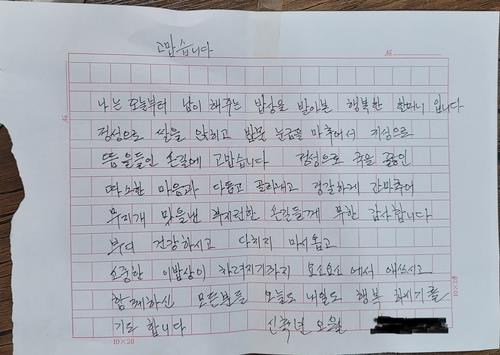 고맙습니다
나는 오늘부터 남이 해주는 밥상을 받아본 행복한 할머니 입니다
정성으로 쌀을 앉히고 밥물 눈금을 마추어서 지성으로
뜸을들인 손길에 고맙습니다 정성으로 국을 끓인
따스한 마음과 다듬고 골라내고 정갈하게 간마추어
무지개 맛을낸 부지런한 손길들께 무한 감사합니다
부디 건강하시고 다치지 마시옵고
소중한 이밥상이 차려지기까지 요소요소에서 애쓰시고
함께하신 모든분들 오늘도 내일도 행복 하시기를
기도 합니다 신축년 오월
10×20
10×20